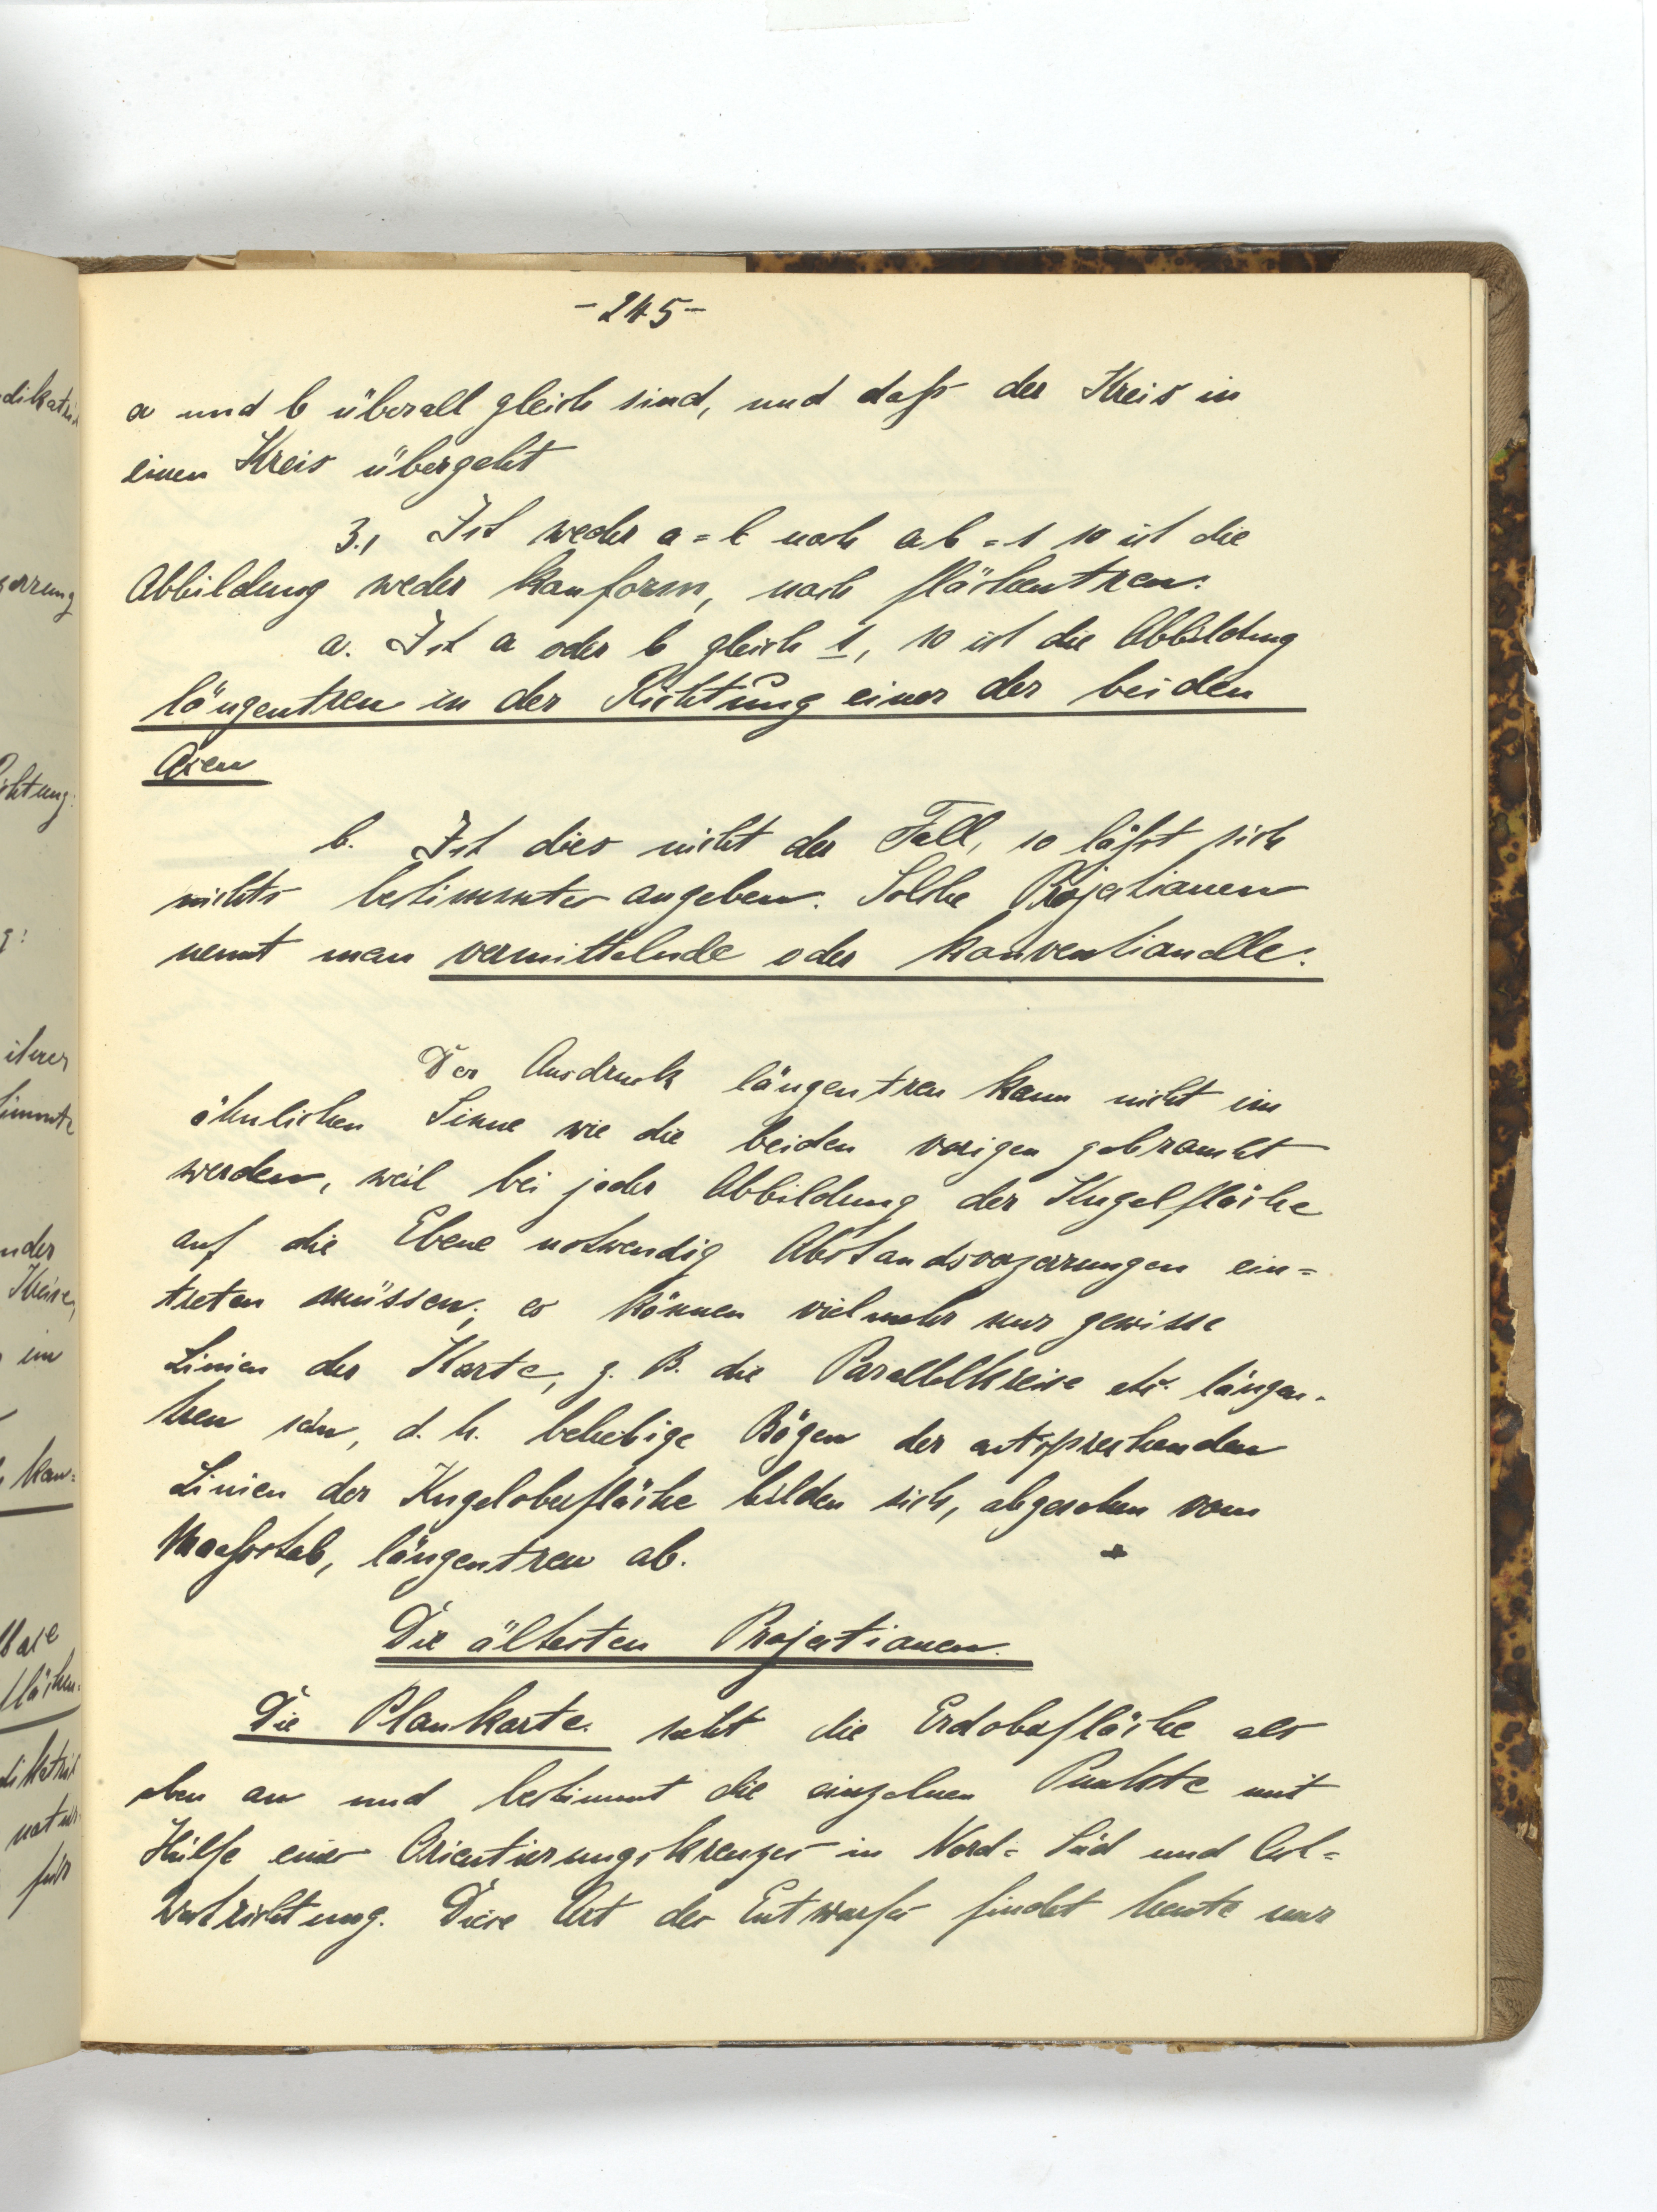 -245-
a und b überall gleich sind, und daß der Kreis in
einen Kreis übergeht
3., Ist weder a=b noch ab=1 so ist die
Abbildung weder konform, noch flächentreu.
a. Ist a oder b gleich 1, so ist die Abbildung
längentreu in der Richtung einer der beiden
Axen
b. Ist dies nicht der Fall, so läßt sich
nichts bestimmtes angeben. Solche Projectionen
nennt man vermittelnde oder konventionelle.
Der Ausdruck längentreu kann nicht im
ähnlichen Sinne wie die beiden vorigen gebraucht
werden, weil bei jeder Abbildung der Kugelfläche
auf die Ebene notwendig Abstandsverzerrungen ein=
treten müssen; es können vielmehr nur gewisse
Linien der Karte, z. B. die Parallelkreise etc. längen-
treu sein, d. h. beliebige Bögen der entsprechenden
Linien der Kugeloberfläche bilden sich, abgesehen vom
Maaßstab, längentreu ab.
Die ältesten Projectionen.
Die Plankarte. sieht die Erdoberfläche als
eben an und bestimmt die einzelnen Punkte mit
Hülfe eines Orientierungskreuzes in Nord= Süd und Ost=
Westrichtung. Diese Art des Entwurfes findet heute nur
dikatri
zerrung
chtung:
g:
ihrer
nder
Kreise,
im
kon=
fläch
natur
für